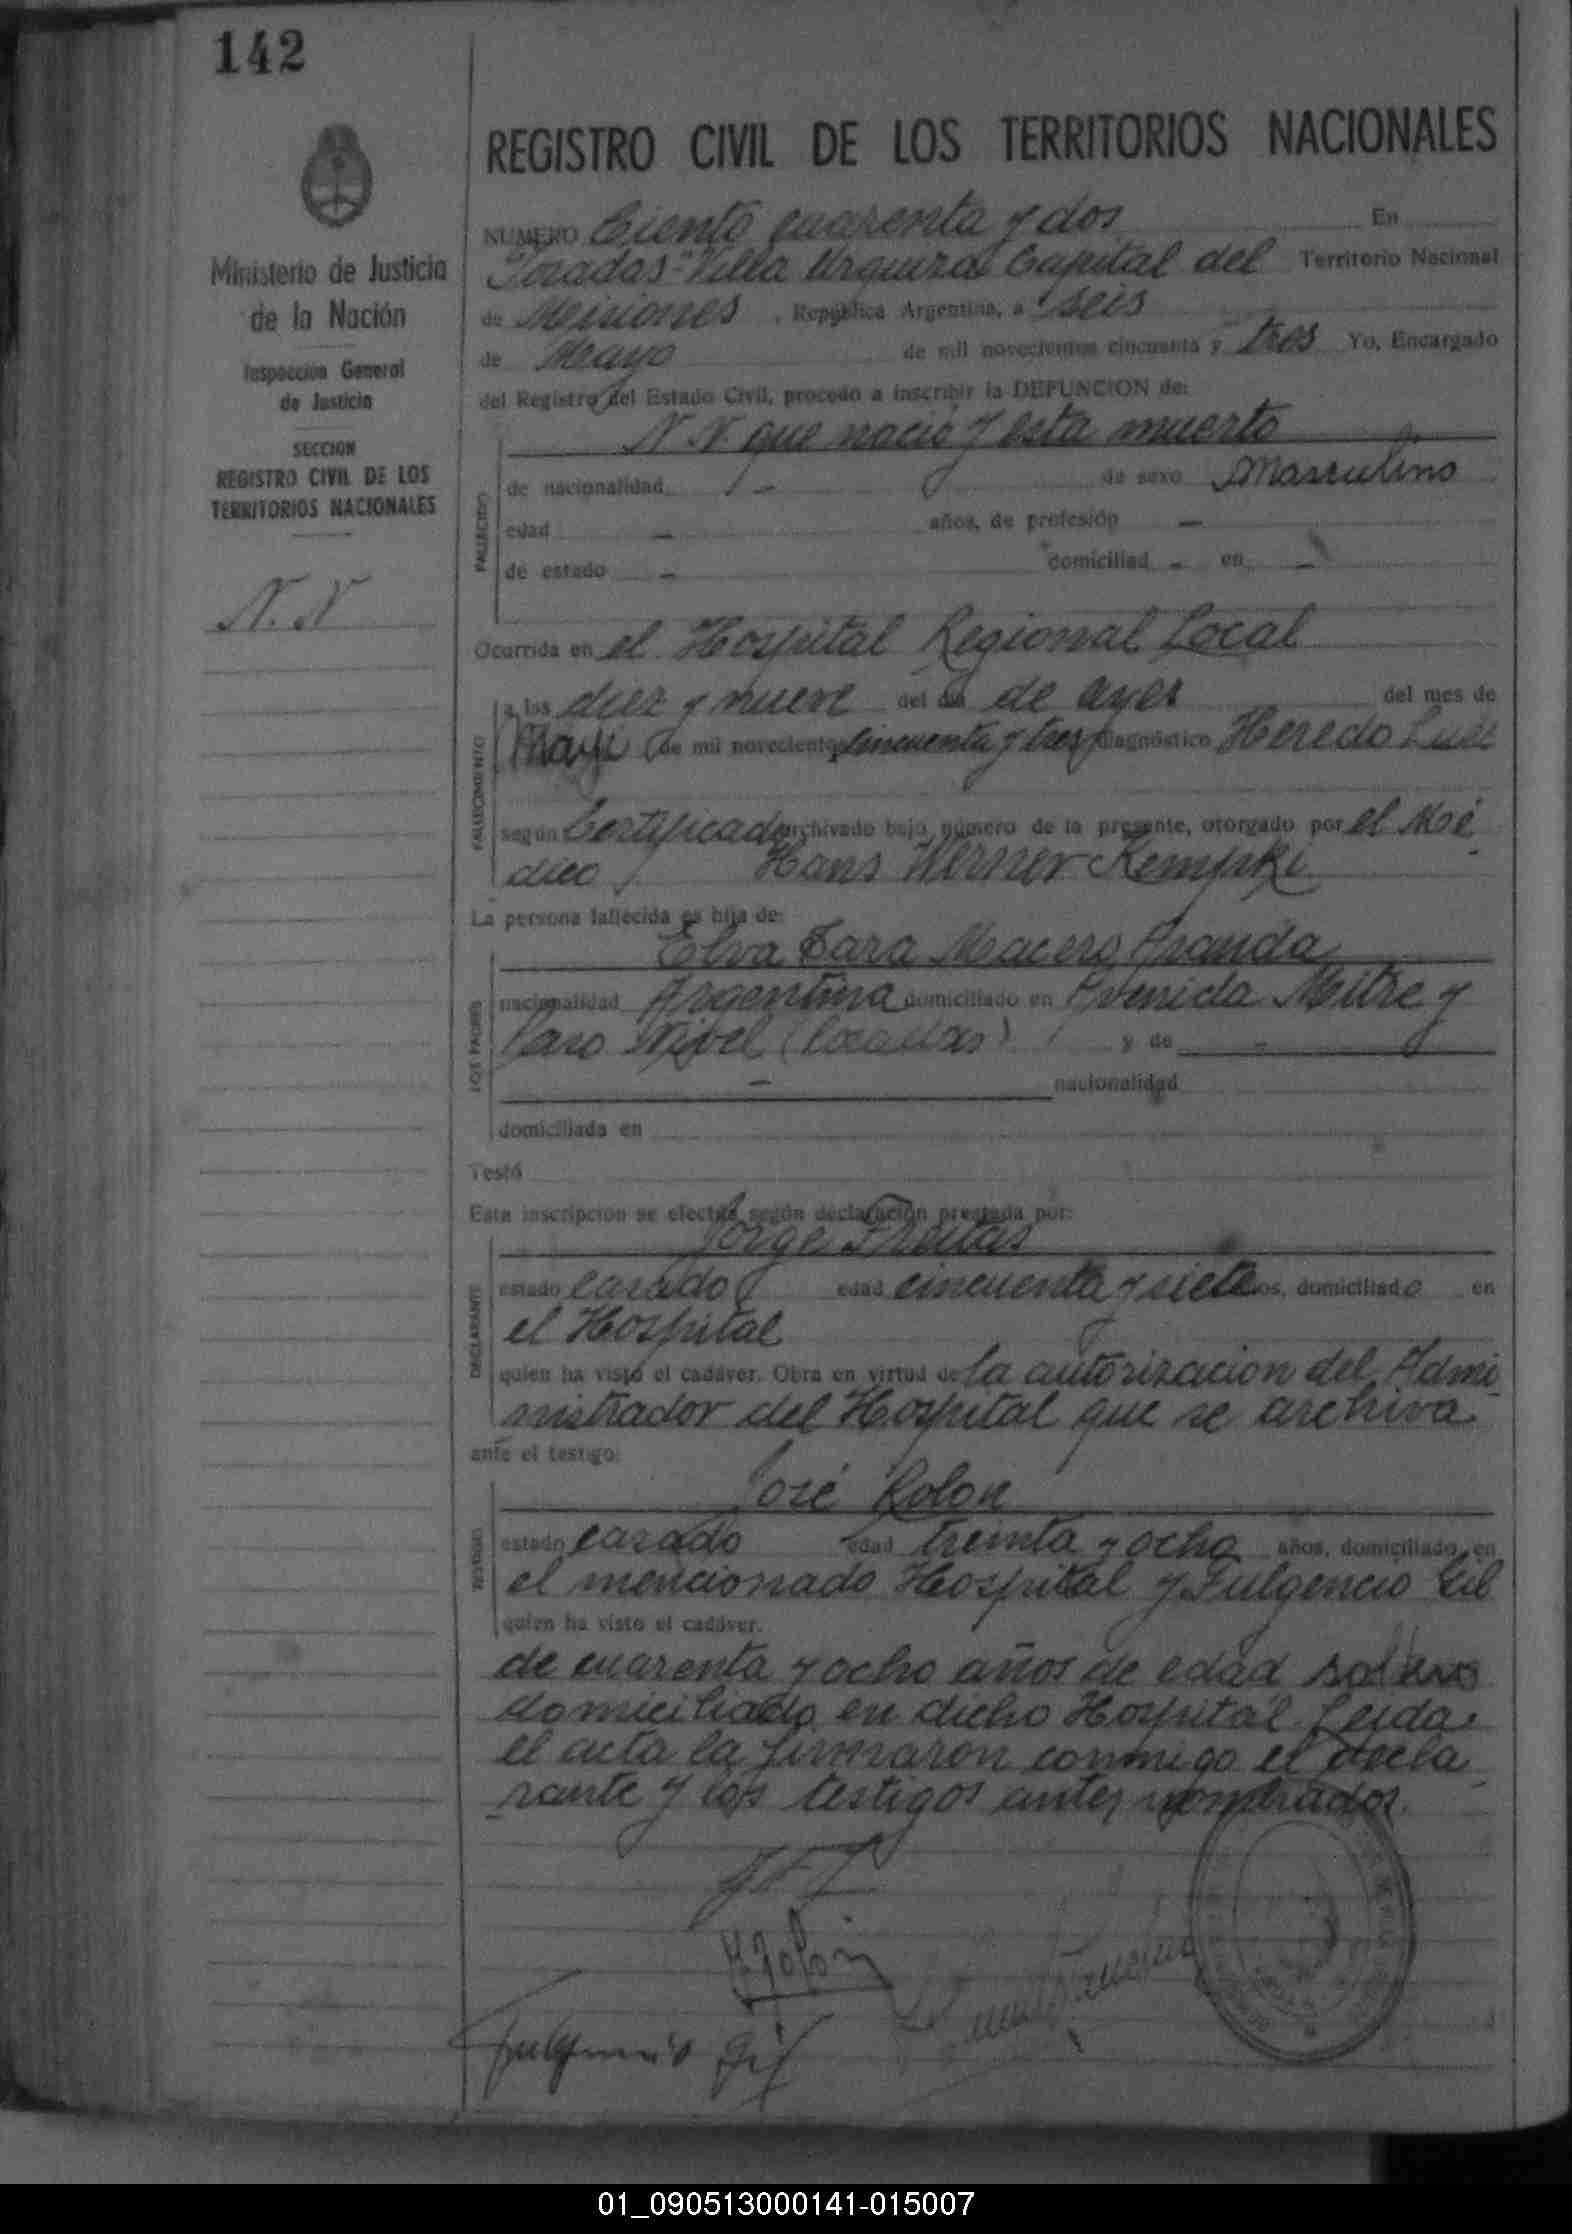 142
REGISTRO CIVIL DE LOS TERRITORIOS NACIONALES
Ministerio de Justicia
de la Nación
Inspección General
de Justicia
SECCION
REGISTRO CIVIL DE LOS
TERRITORIOS NACIONALES
N. N
NUMERO Ciento cuarenta y dos En
Posadas-Villa Urquiza Capital del Territorio Nacional
de Misiones, República Argentina, a seis
de Mayo de mil novecientos cincuenta y tres Yo, Encargado
del Registro del Estado Civil, procedo a inscribir la DEFUNCION de:
N. N. que nació y esta muerto
FALLECIDO
de nacionalidad - de sexo Masculino
edad - años, de profesión -
de estado - domiciliad - en -
Ocurrida en el Hospital Regional Local
FALLECIMIENTO
a las diez y nueve del dia de ayer del mes de
Mayo de mil novecientos cincuenta y tres diagnóstico Heredo Lues
según Certificado archivado bajo número de la presente, otorgado por el Mé
dico Hans Werner Kempski
La persona fallecida es hija de:
Elva Sara Macero Aranda
LOS PADRES
nacionalidad Argentina domiciliado en Avenida Mitre y
Paso Nivel (Posadas) y de -
- nacionalidad
domiciliada en
Testó
Esta inscripcion se efectúa según declaración prestada por:
Jorge Freitas
DECLARANTE
estado casado edad cincuenta y siete años, domiciliado en
el Hospital
quien ha visto el cadáver. Obra en virtud de la autorizacion del Admi
nistrador del Hospital que se archiva
ante el testigo:
José Rolon
TESTIGO
estado casado edad treinta y ocho años, domiciliado en
el mencionado Hospital y Fulgencio Gil
quien ha visto el cadáver.
de cuarenta y ocho años de edad soltero
domiciliado en dicho Hospital. Leida
el acta la firmaron conmigo el decla
rante y los testigos antes nombrados.
Fulgencio Gil
01_090513000141-015007